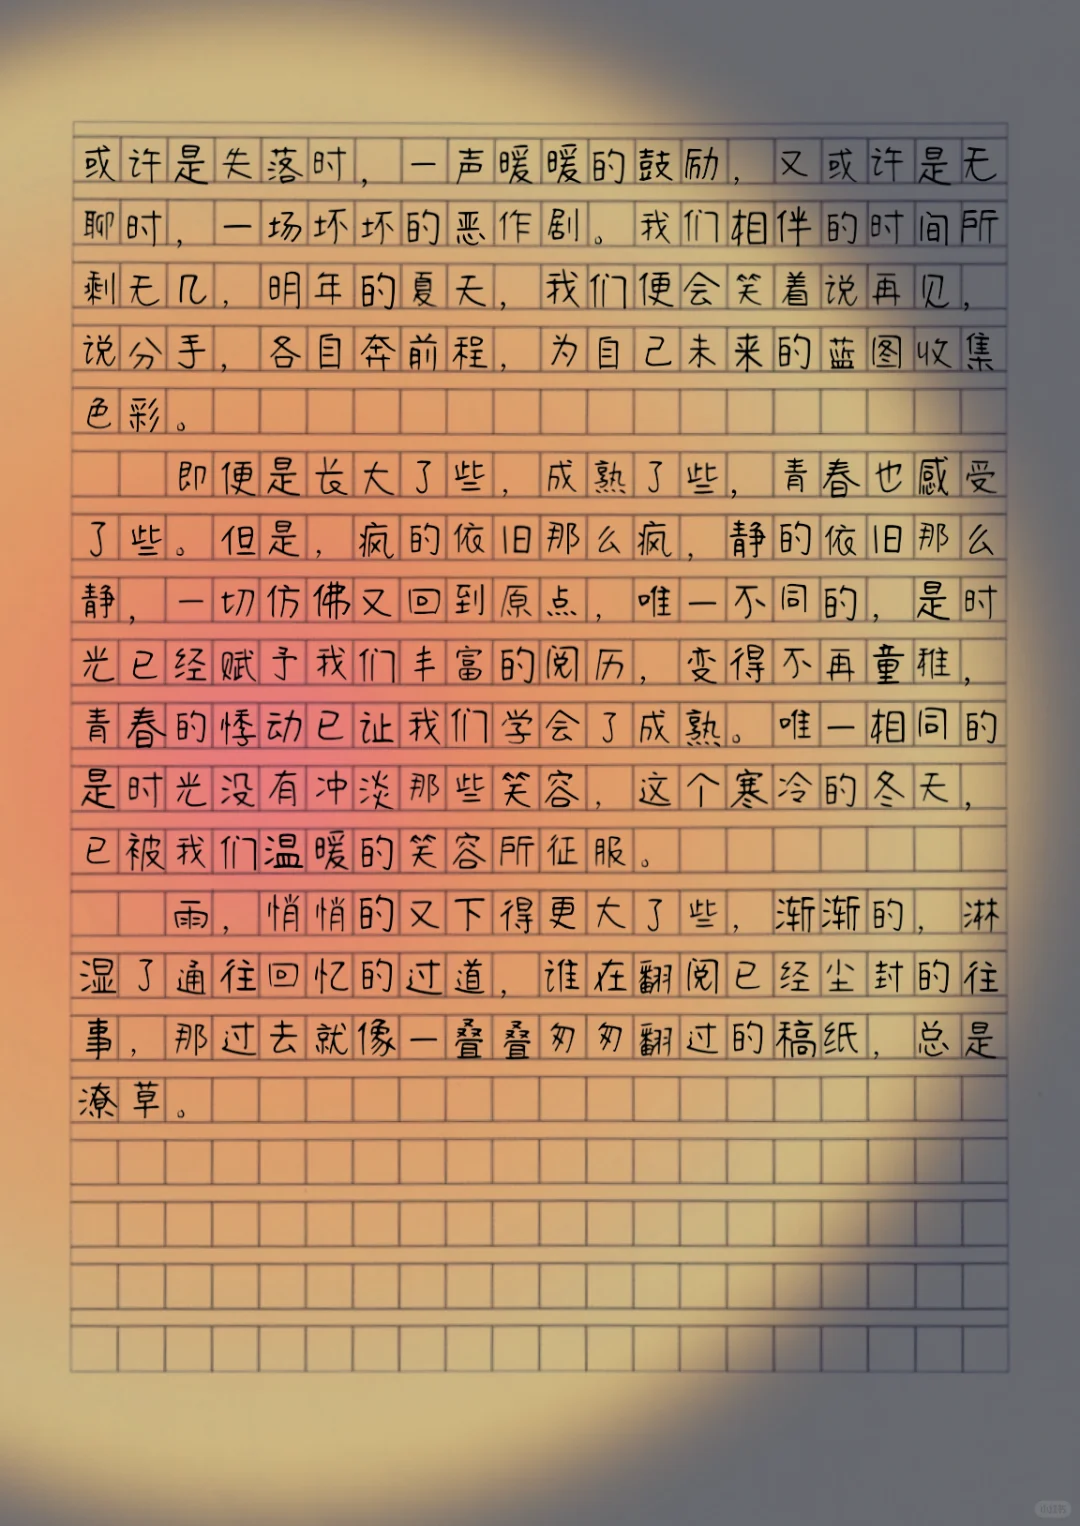 或许是失落时，一声暖暖的鼓励，又或许是无
聊时，一场坏坏的恶作剧。我们相伴的时间所
剩无几，明年的夏天，我们便会笑着说再见，
说分手，各自奔前程，为自己未来的蓝图收集
色彩。
即便是长大了些，成熟了些，青春也感受
了些。但是，疯的依旧那么疯，静的依旧那么
静，一切仿佛又回到原点，唯一不同的，是时
光已经赋予我们丰富的阅历，变得不再童稚，
青春的悸动已让我们学会了成熟。唯一相同的
是时光没有冲淡那些笑容，这个寒冷的冬天，
已被我们温暖的笑容所征服。
雨，悄悄的又下得更大了些，渐渐的，淋
湿了通往回忆的过道，谁在翻阅已经尘封的往
事，那过去就像一叠叠匆匆翻过的稿纸，总是
潦草。